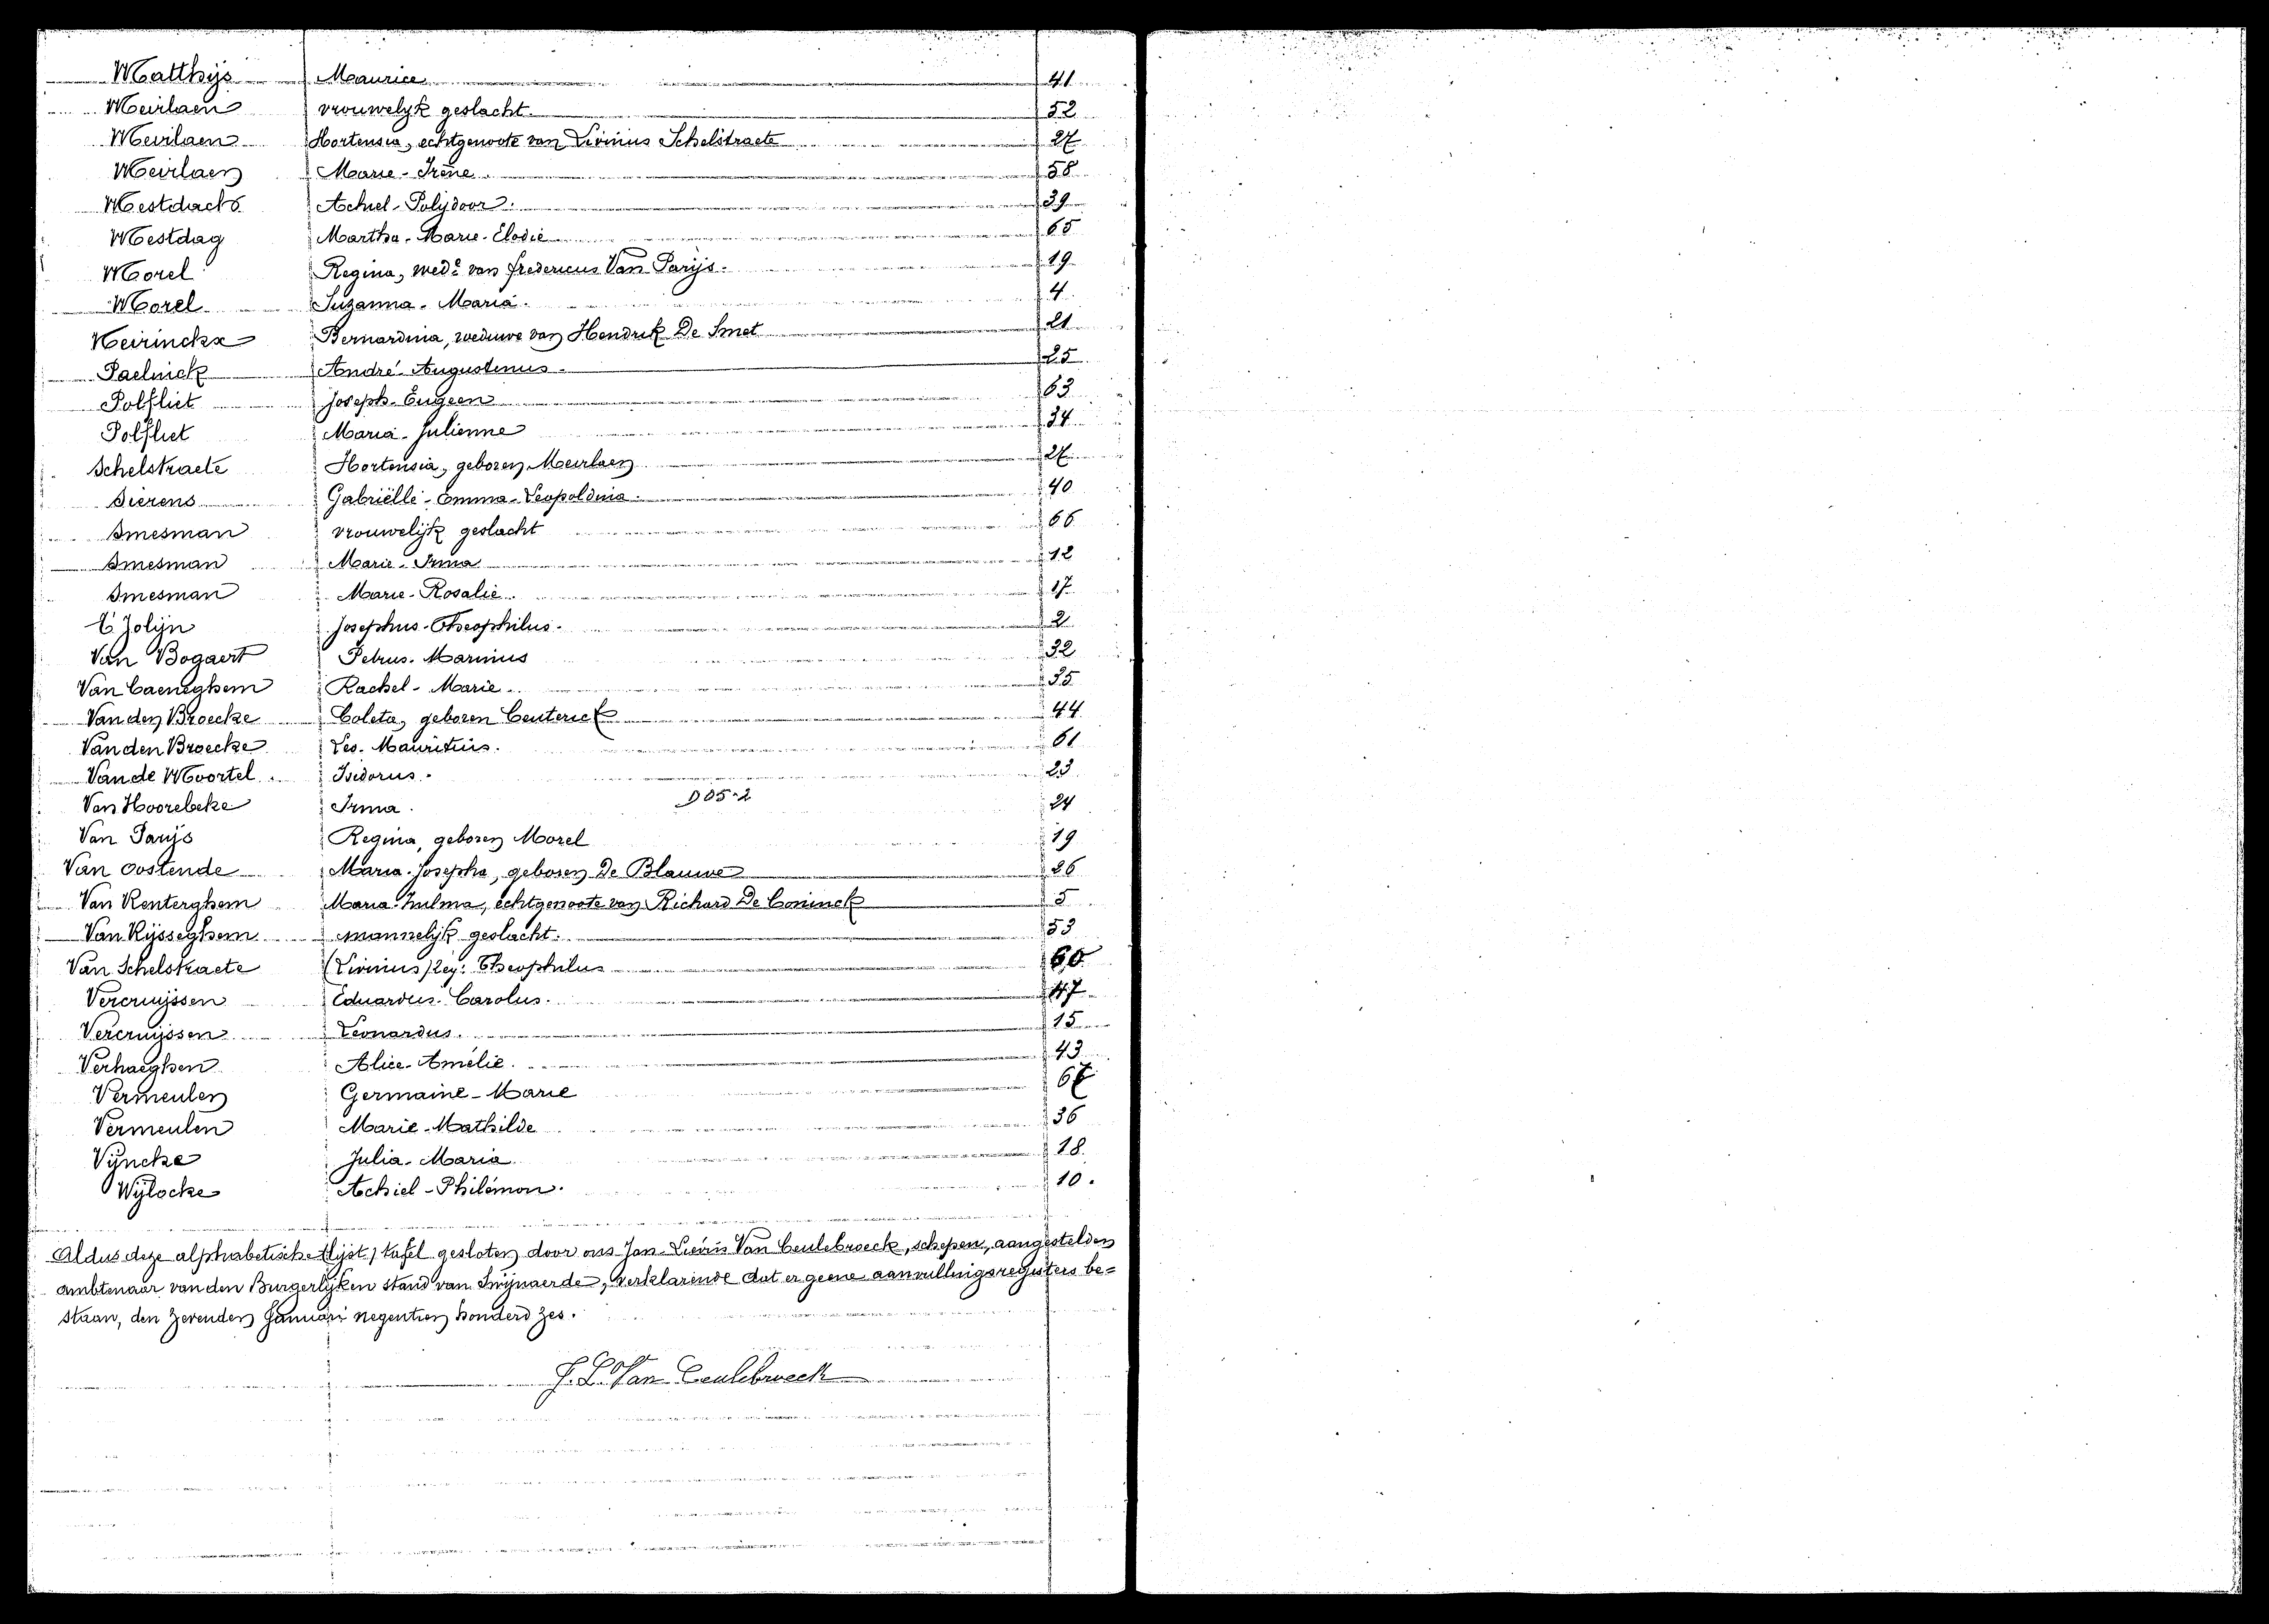 Matthijs Maurice 41
Meirlaen vrouwelijk geslacht. 52
Meirlaen Hortensia, echtgenoote van Livinus Schelstraete 27
Meirlaen Marie-Irène. 58
Mestdach Achiel-Polijdoor. 39
Mestdag Martha-Marie-Elodie 65
Morel Regina, wede van Fredericus Van Parijs. 19
Morel Suzanna-Maria. 4
Neirinckx Bernardina, weduwe van Hendrik De Smet 21
Paelinck André Augustinus. 25
Polfliet Joseph-Eugeen 63
Polfliet Maria-Julienne 34
Schelstraete Hortensia, geboren Meirlaen 27
Sierens Gabriëlle-Emma-Leopoldina. 40
Smesman vrouwelijk geslacht 66
Smesman Marie-Irma 12
Smesman Marie-Rosalie. 17
T'Jolijn Josephus-Theophilus. 2
Van Bogaert Petrus-Marinus 32
Van Caeneghem Rachel-Marie. 35
Van den Broecke Coleta, geboren Ceuterick 44
Van den Broecke Leo-Mauritius. 61
Van de Moortel. Isidorus. 23
Van Hoorebeke Irma. D05-2 24
Van Parijs Regina, geboren Morel 19
Van Oostende Maria-Josepha, geboren De Blauwe 26
Van Renterghem Maria-Zulma, echtgenoote van Richard De Coninck 5
Van Rijsseghem mannelijk geslacht. 53
Van Schelstraete (Livinus) Theophilus 60
Vercruijssen Eduardus-Carolus. 47
Vercruijssen Leonardus. 15
Verhaeghen Alice-Amélie. 43
Vermeulen Germaine-Marie 67
Vermeulen Marie-Mathilde 36
Vijncke Julia-Maria 18.
Wijlocke Achiel-Philémon. 10.
Aldus deze alphabetische lijst / tafel gesloten door ons Jan-Lievin Van Ceulebroeck, schepen, aangestelden
ambtenaar van den Burgerlijken stand van Swijnaerde, verklarende dat er geene aanvullingsregisters be=
staan, den zevenden Januari negentien honderd zes.
J. L. Van Ceulebroeck